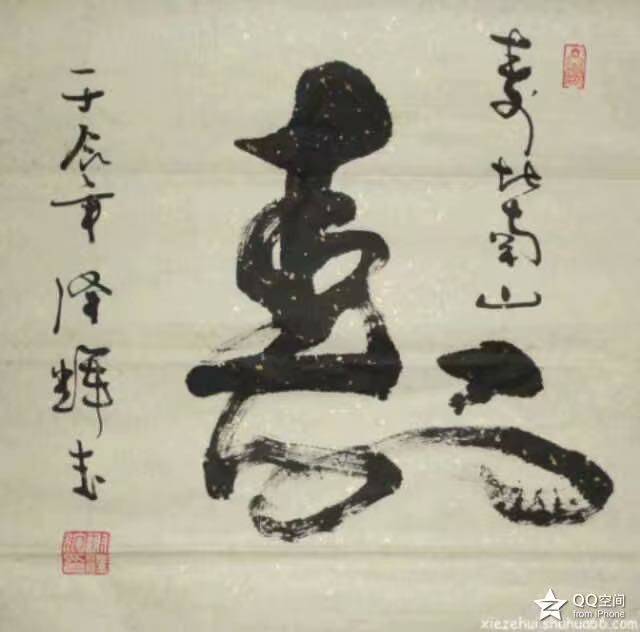 寿比南山
寿
壬辰年 泽辉书
QQ空间
from iPhone
xiezehui.shuhua66.com